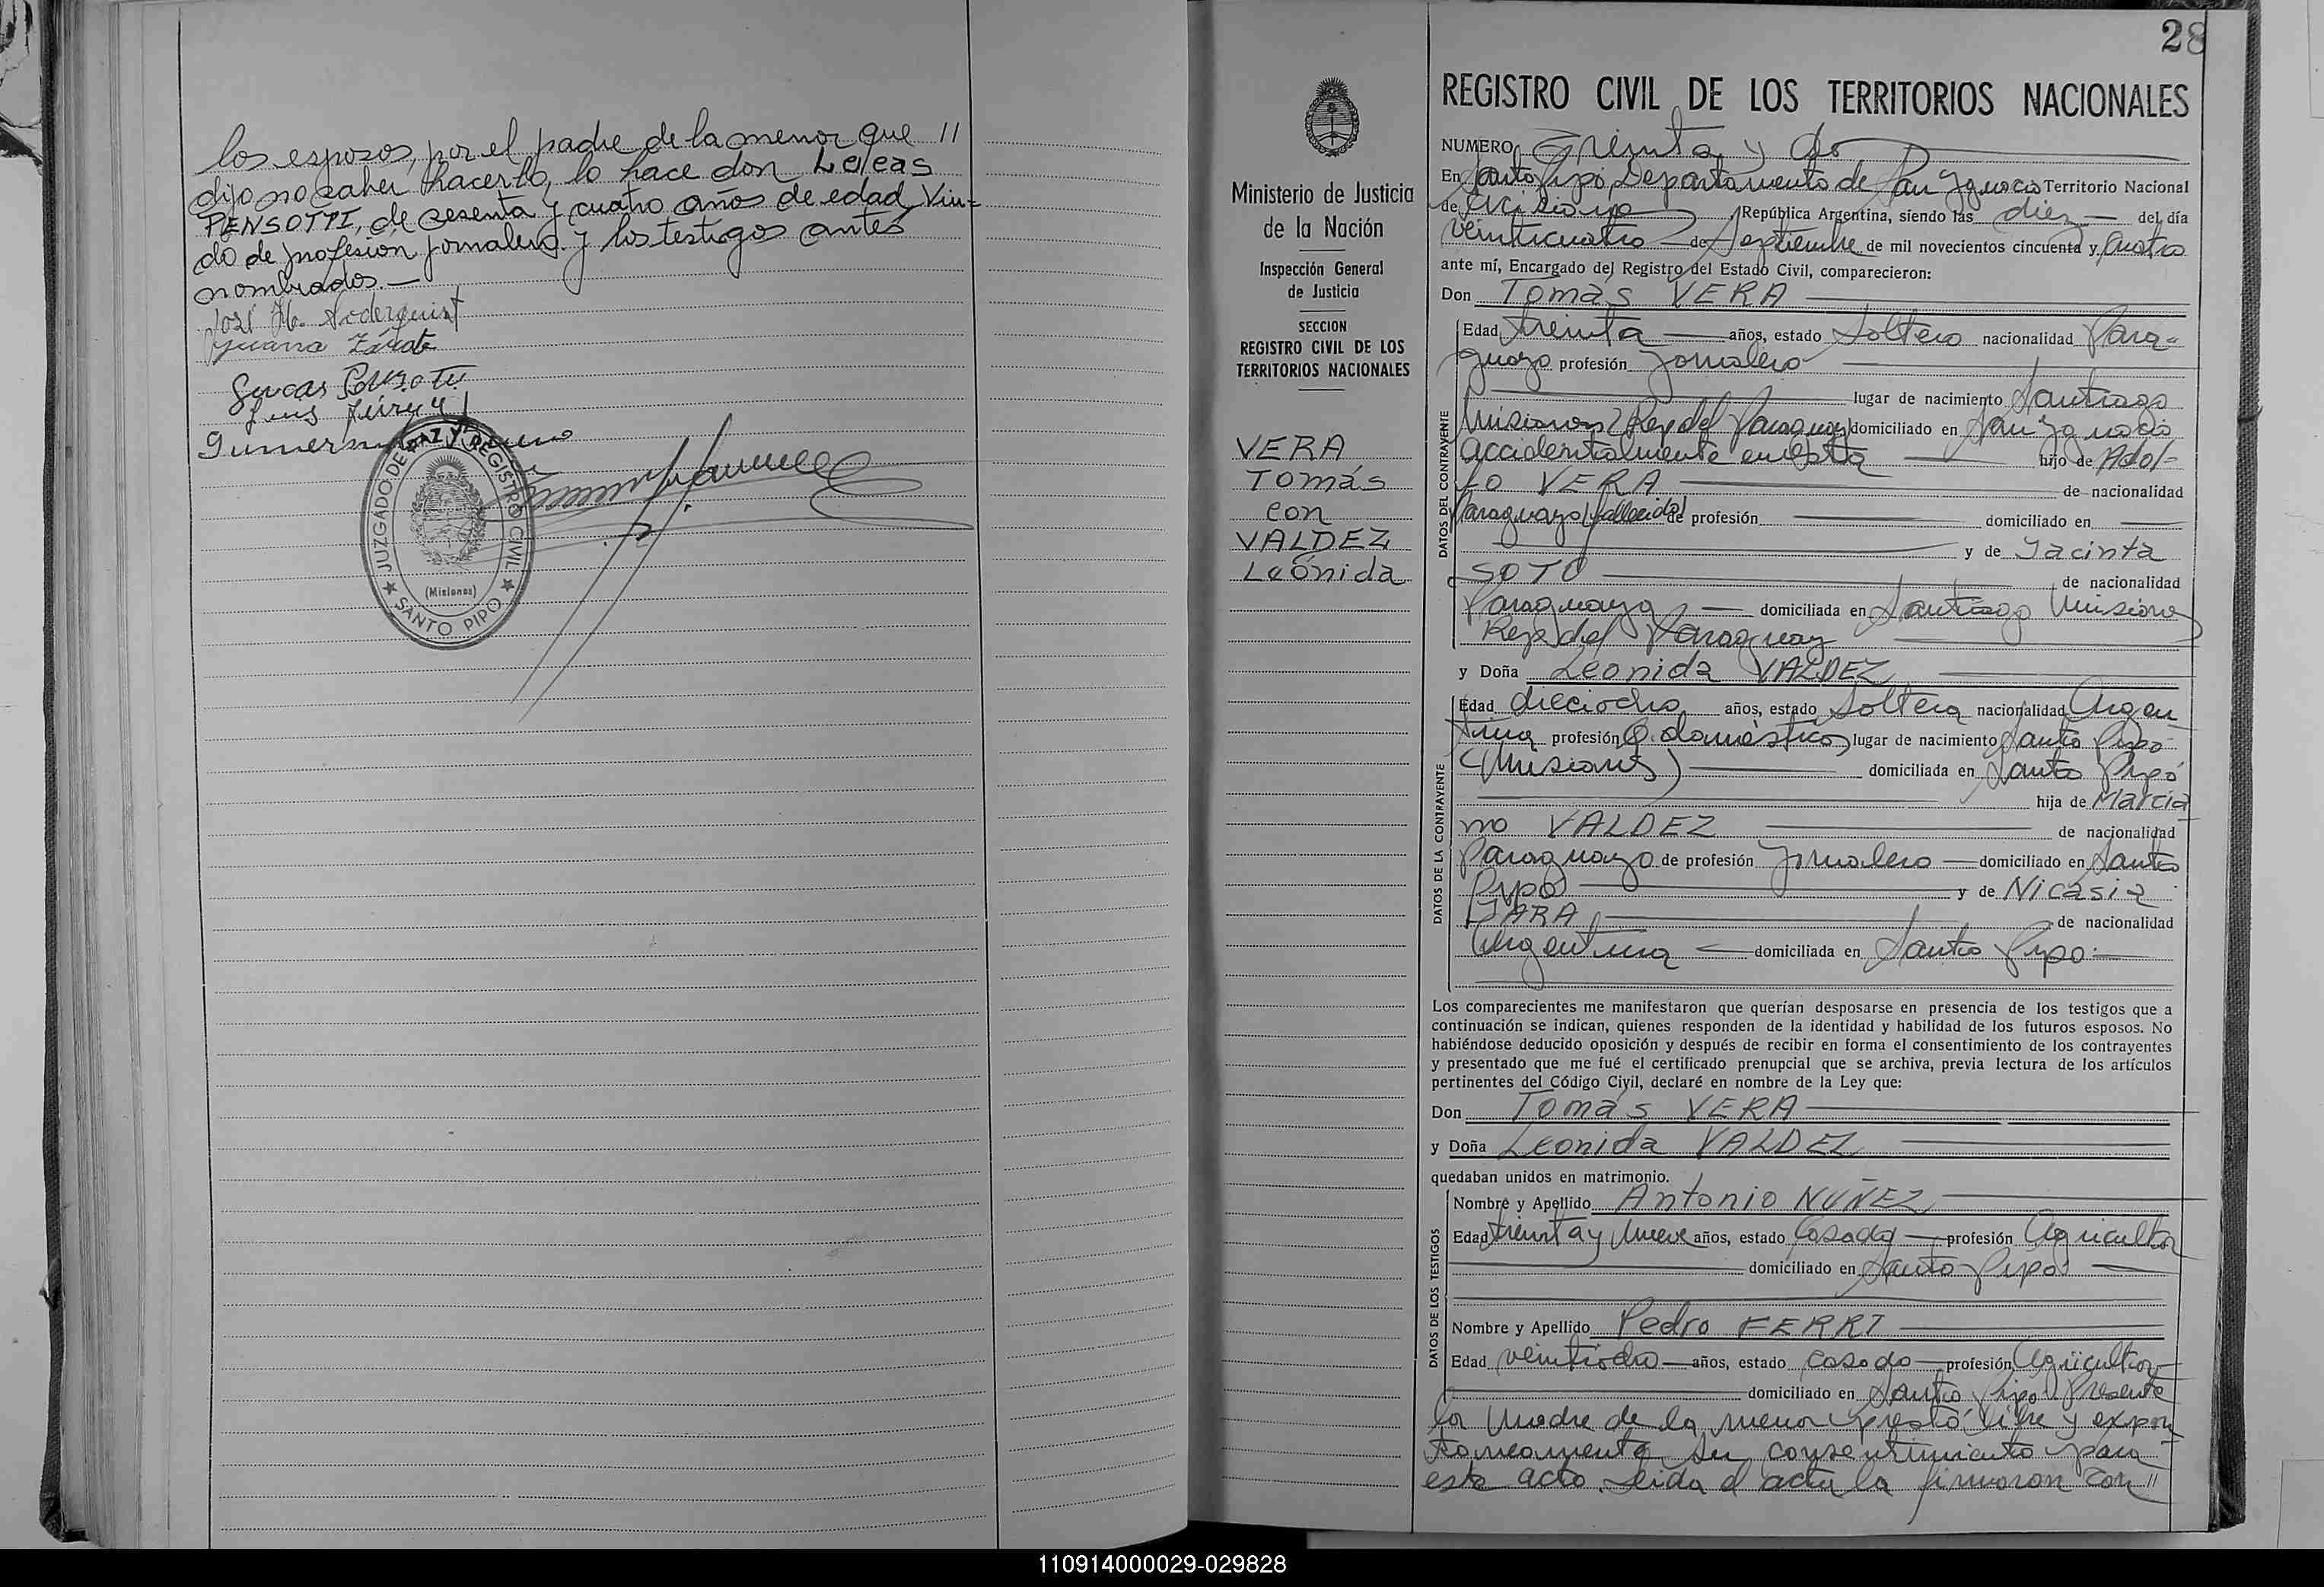 los esposos, por el padre de la menor que //
dijo no saber hacerlo, lo hace don Lucas
PENSOTTI, de sesenta y cuatro años de edad, Viu=
do de profesion jornalero y los testigos antes
nombrados.—
José H. Soderquist
Juana Zárate
Lucas Pensotti
Luis
JUZGADO DE PAZ Y REGISTRO CIVIL
(Misiones)
★ SANTO PIPO ★
28
Ministerio de Justicia
de la Nación
Inspección General
de Justicia
SECCION
REGISTRO CIVIL DE LOS
TERRITORIOS NACIONALES
VERA
Tomás
con
VALDEZ
Leónida
REGISTRO CIVIL DE LOS TERRITORIOS NACIONALES
NUMERO Treinta y dos
En Santo Pipó Departamento de San Ignacio Territorio Nacional
de Misiones República Argentina, siendo las diez — del día
veinticuatro — de Septiembre de mil novecientos cincuenta y cuatro
ante mí, Encargado del Registro del Estado Civil, comparecieron:
Don Tomás VERA
DATOS DEL CONTRAYENTE
Edad treinta — años, estado Soltero nacionalidad Para=
guayo profesión Jornalero
lugar de nacimiento Santiago
Misiones Rep del Paraguay domiciliado en San Ignacio
accidentalmente en esta — hijo de Adol=
fo VERA de nacionalidad
Paraguayo (fallecido) de profesión — domiciliado en —
y de Jacinta
SOTO de nacionalidad
Paraguaya — domiciliada en Santiago Misiones
Rep del Paraguay
y Doña Leonida VALDEZ
DATOS DE LA CONTRAYENTE
Edad dieciocho años, estado Soltera nacionalidad Argen
tina profesión Q. domésticos lugar de nacimiento Santo Pipó
(Misiones) — domiciliada en Santo Pipó
hija de Marcia
no VALDEZ — de nacionalidad
Paraguayo de profesión Jornalero — domiciliado en Santo
Pipó — y de Nicasia
JARA de nacionalidad
Argentina — domiciliada en Santo Pipo —
Los comparecientes me manifestaron que querían desposarse en presencia de los testigos que a
continuación se indican, quienes responden de la identidad y habilidad de los futuros esposos. No
habiéndose deducido oposición y después de recibir en forma el consentimiento de los contrayentes
y presentado que me fué el certificado prenupcial que se archiva, previa lectura de los artículos
pertinentes del Código Civil, declaré en nombre de la Ley que:
Don Tomás VERA
y Doña Leonida VALDEZ
quedaban unidos en matrimonio.
DATOS DE LOS TESTIGOS
Nombre y Apellido Antonio NUÑEZ
Edad treinta y nueve años, estado Casado — profesión Agricultor
domiciliado en Santo Pipó —
Nombre y Apellido Pedro FERRI
Edad veintiocho — años, estado casado — profesión Agricultor
domiciliado en Santo Pipó. Presente
la madre de la menor prestó libre y expon
taneamente su consentimiento para
este acto. Leida el acta la firmaron con //
110914000029-029828